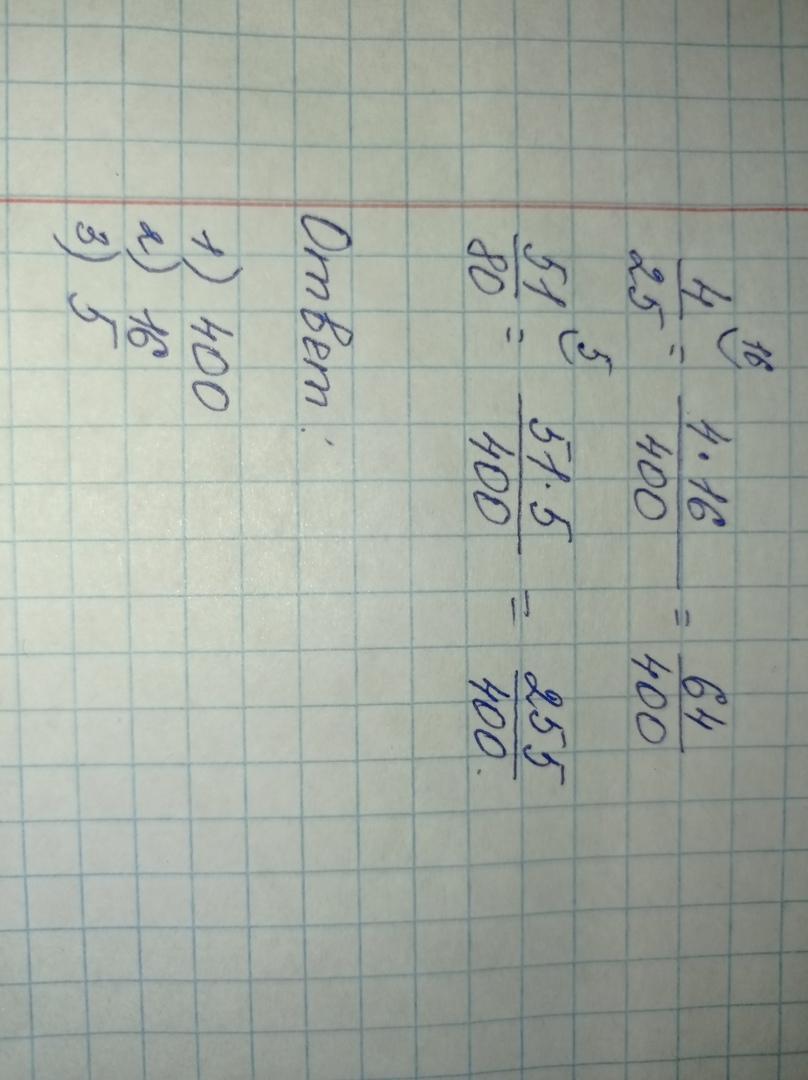 4/25 ⌣16 = 4·16/400 = 64/400
51/80 ⌣5 = 51·5/400 = 255/400
Ответ:
1) 400
2) 16
3) 5